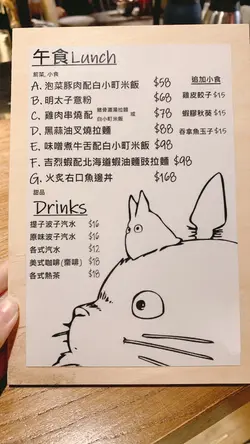 午食Lunch
前菜, 小食
A. 泡菜豚肉配白小町米飯 $58
B. 明太子意粉 $68
C. 雞肉串燒配 豬骨濃湯拉麵 或 白小町米飯 $78
D. 黑蒜油叉燒拉麵 $88
E. 味噌煮牛舌配白小町米飯 $98
F. 吉烈蝦配北海道蝦油麵豉拉麵 $98
G. 火炙右口魚邊丼 $168
追加小食
雞皮餃子 $15
蝦膠秋葵 $15
吞拿魚玉子 $15
甜品
Drinks
提子波子汽水 $16
原味波子汽水 $16
各式汽水 $12
美式咖啡(齋啡) $18
各式熱茶 $18